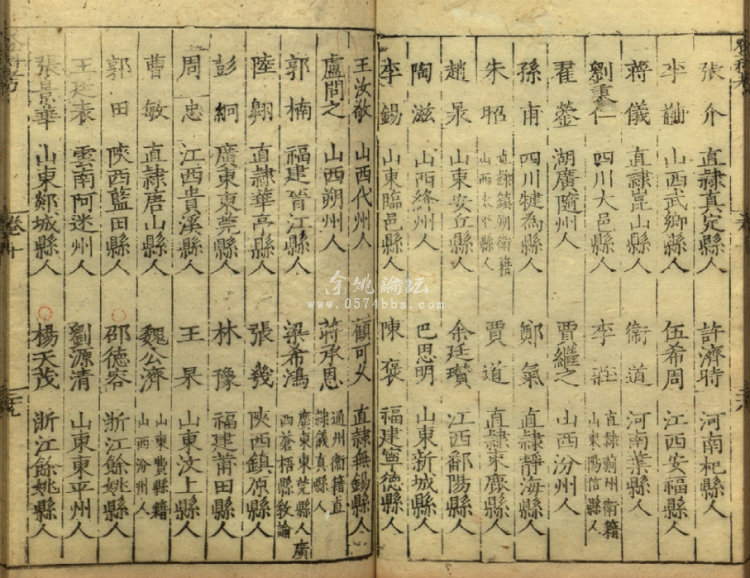 張介 直隸真定縣人 許濟時 河南杞縣人
李黼 山西武鄉縣人 伍希周 江西安福縣人
蔣儀 直隸崑山縣人 衞道 河南葉縣人
劉重仁 四川大邑縣人 李莊 直隸薊州衛籍山東陽信縣人
翟鎣 湖廣隨州人 賈繼之 山西汾州人
孫甫 四川犍為縣人 鄭氣 直隸靜海縣人
朱昭 直隸鎮朔衛籍山西太平縣人 賈道 直隸束鹿縣人
趙杲 山東安丘縣人 余廷瓚 江西鄱陽縣人
陶滋 山西絳州人 巴思明 山東新城縣人
李錫 山東臨邑縣人 陳褒 福建寧德縣人
王汝敬 山西代州人 顧可久 直隸無錫縣人
盧問之 山西朔州人 蔣承恩 通州衛籍直隸儀真縣人
郭楠 福建晉江縣人 梁希鴻 廣東東莞縣人廣西蒼梧縣教諭
陸翱 直隸華亭縣人 張幾 陝西鎮原縣人
彭絅 廣東東莞縣人 林豫 福建莆田縣人
周忠 江西貴溪縣人 王杲 山東汶上縣人
曹敏 直隸唐山縣人 魏公濟 山東費縣籍山西汾州人
郭田 陝西藍田縣人 邵德容 浙江餘姚縣人
王廷表 雲南阿迷州人 劉源清 山東東平州人
張景華 山東郯城縣人 楊天茂 浙江餘姚縣人
卷十
余姚論坛
www.0574bbs.com